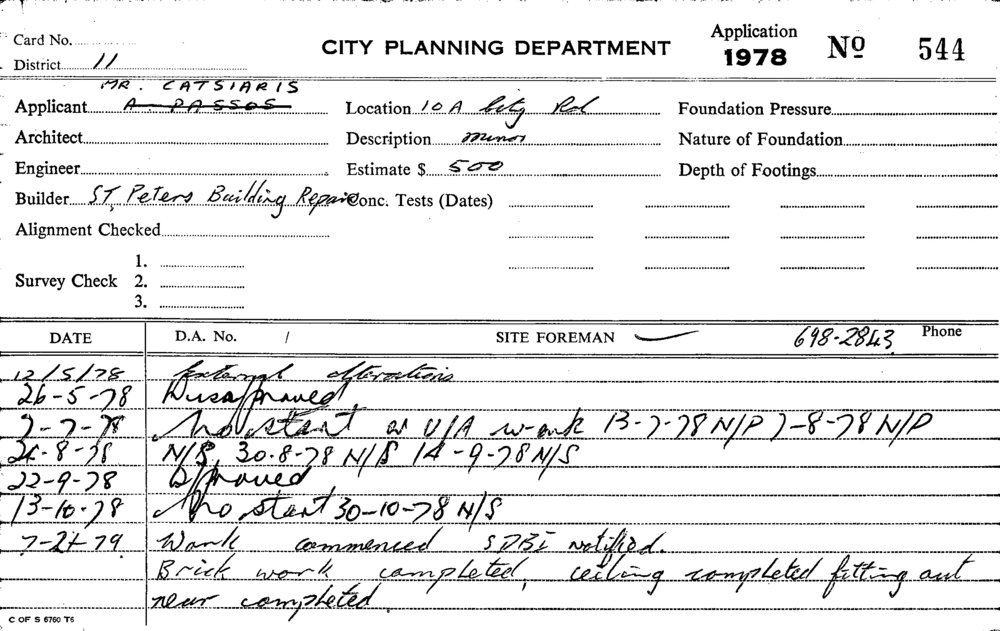 Card No.
District 11
CITY PLANNING DEPARTMENT
Application
1978 No 544
MR. CATSIARIS
Applicant A PASSOS
Architect
Engineer
Builder ST. Peters Building Repairs
Alignment Checked
Survey Check 1.
2.
3.
Location 10A City Rd
Description minor
Estimate $ 500
Conc. Tests (Dates)
Foundation Pressure
Nature of Foundation
Depth of Footings
DATE D.A. No. / SITE FOREMAN 698-2843 Phone
12/5/78 External alterations
26-5-78 Disapproved
7-7-78 No start on U/A work 13-7-78 N/P 7-8-78 N/P
24-8-78 N/S 30-8-78 N/S 14-9-78 N/S
22-9-78 Approved
13-10-78 No start 30-10-78 N/S
7-2-79 Work commenced SDBI notified.
Brick work completed, ceiling completed fitting out
near completed
C OF S 6760 T6